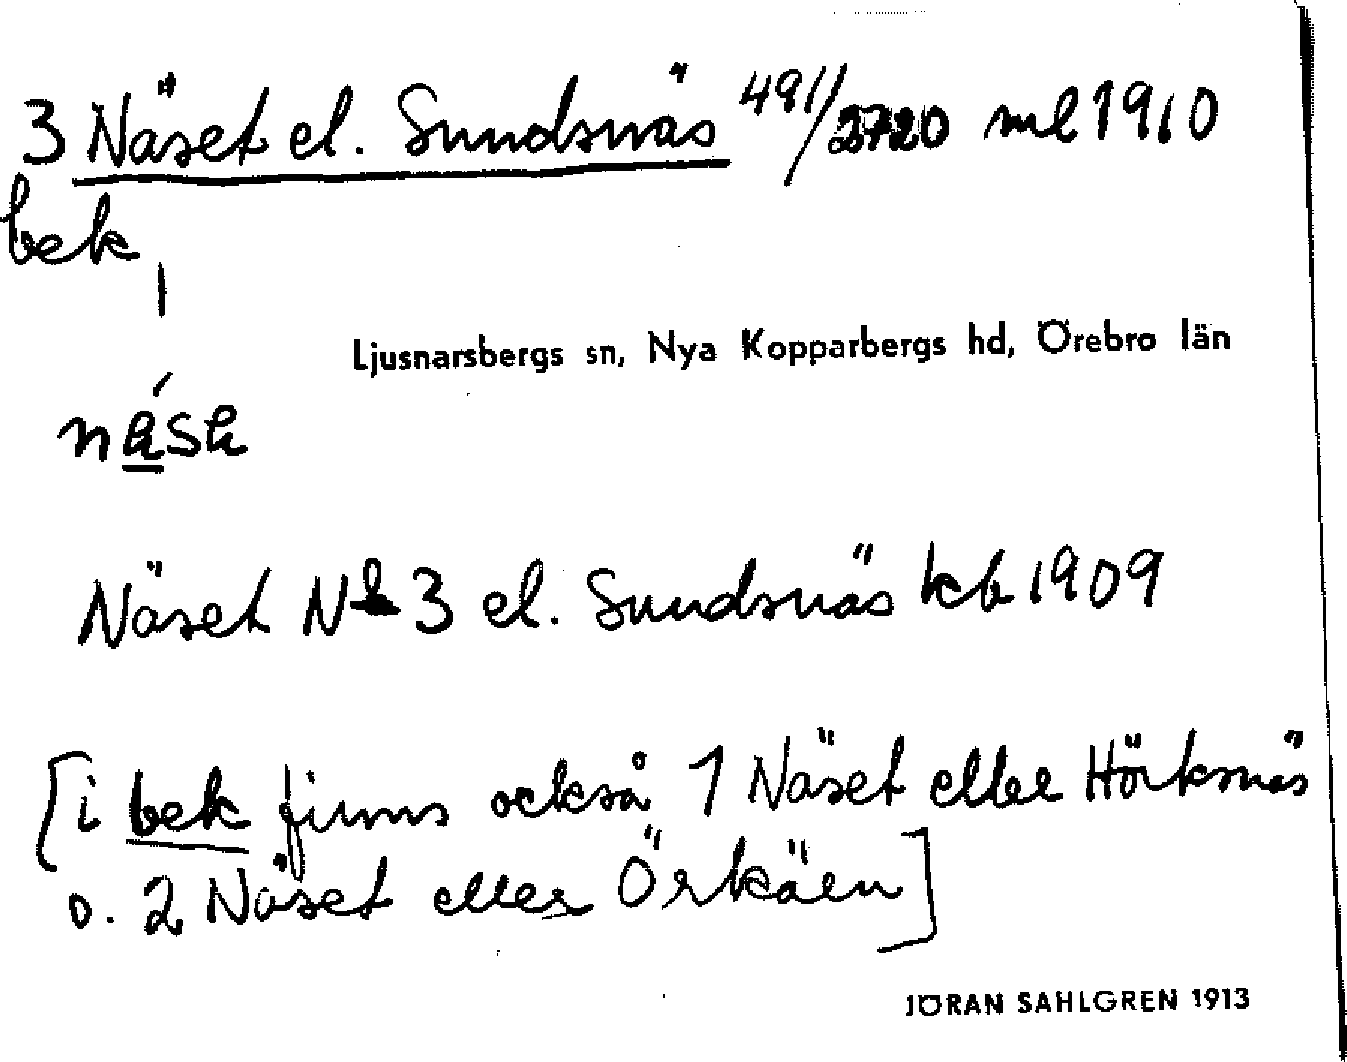 3 Näset el. Sundsnäs 4911/2720 ml 1910
bek
Ljusnarsbergs sn, Nya Kopparbergs hd, Örebro län
Näset No 3 el. Sundsnäs kb 1909
[i bek finns också 1 Näset eller Hörksnäs
o. 2 Näset eller Örkäen]
JÖRAN SAHLGREN 1913